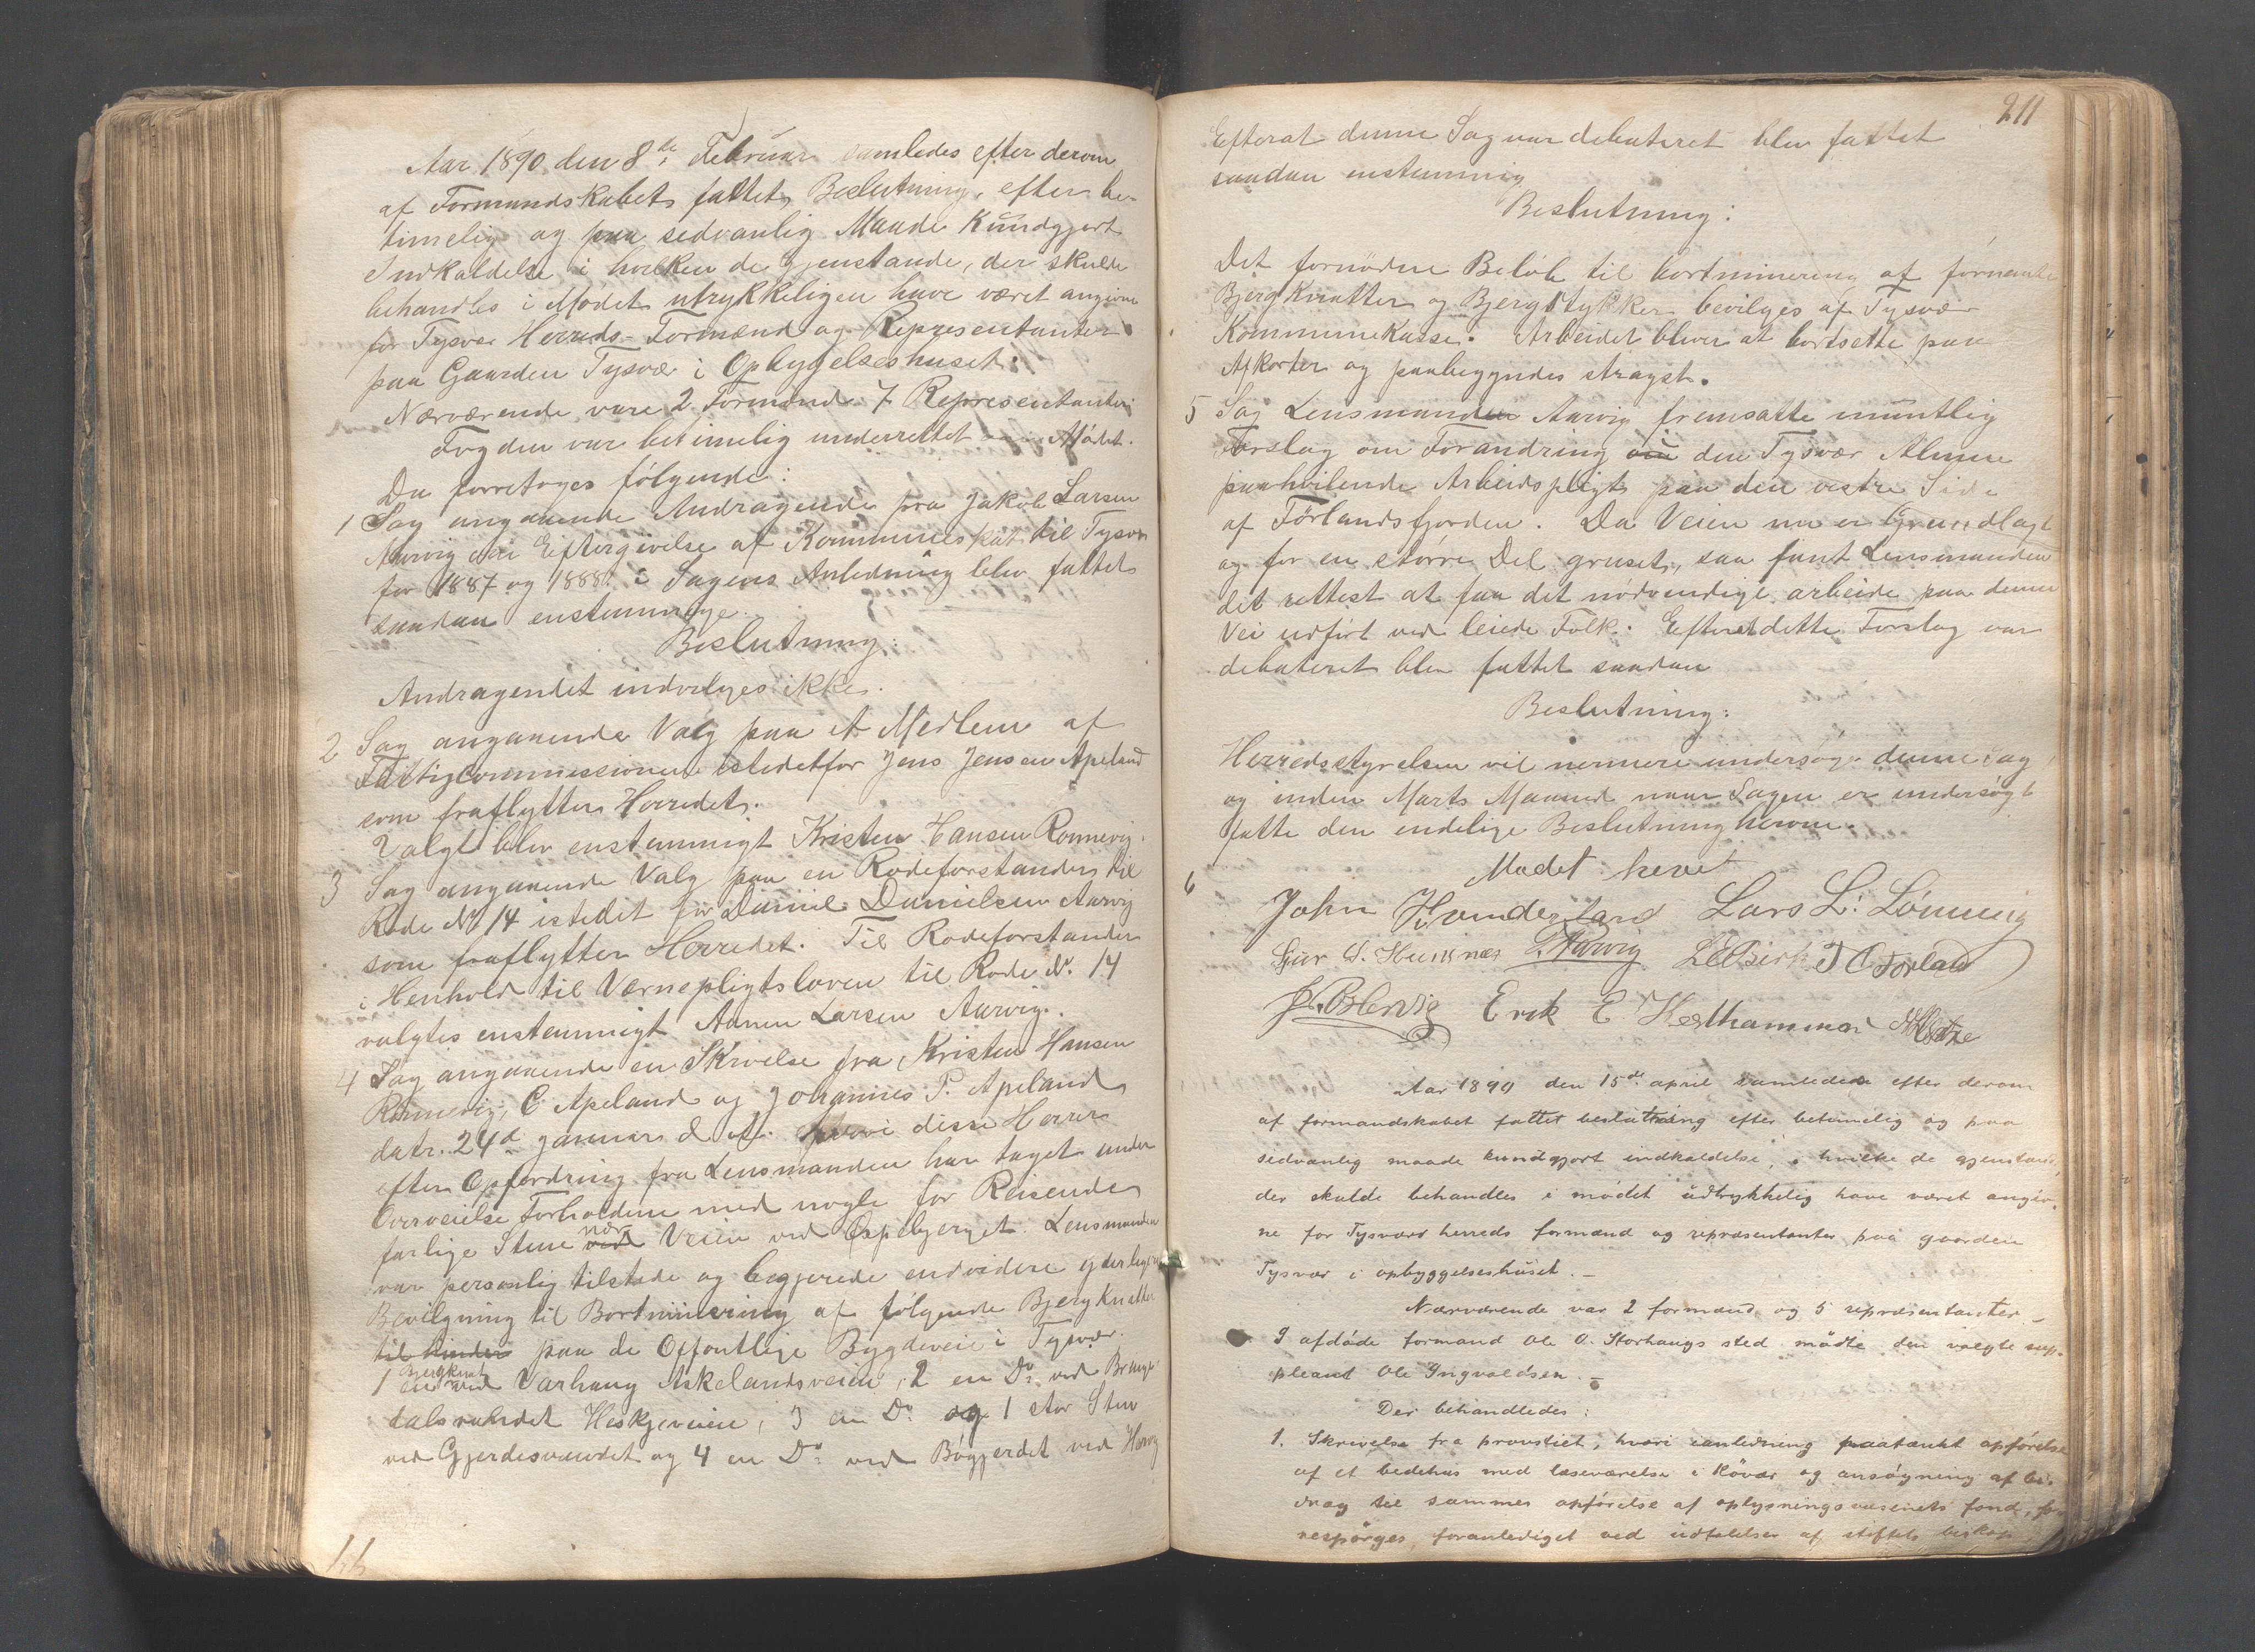 Aar 1890 den 8de Februar samledes efter derom
af Formandskabet fattet Beslutning, efter be-
timelig og paa sedvanlig Maade Kundgjort
Indkaldelse i hvilken de Gjenstande, der skulde
behandles i Mødet utrykkeligen have været angivne
for Tysvær Herreds Formænd og Representanter
paa Gaarden Tysvær i Opbyggelseshuset.
Nærværende vare 2 Formænd 7 Representanter
Fogden var betimelig underrettet Mødet.
Da forretoges følgende:
1 Sag angaaende Andragende fra Jakob Larsen
Aarvig om Eftergivelse af Kommuneskat til Tysvær
for 1887 og 1888. i Sagens Anledning blev fattet
saadan enstemmige
Beslutning:
Andragendet indvilges ikke.
2 Sag angaaende Valg paa et Medlem af
Fattigcommissionen istedetfor Jens Jensen Apeland
som fraflytter Herredet.
Valgt blev enstemmigt Kristen Hansen Ronnevig.
3 Sag angaaende Valg paa en Rodeforstander til
Rode No 14 istedet for Daniel Danielsen Aarvig
som fraflytter Herredet. Til Rodeforstander
i Henhold til Værnepligtsloven til Rode Nr. 14
valgtes enstemmigt Aamen Larsen Aarvig.
4 Sag angaaende en Skrivelse fra Kristen Hansen
Ronnevig, C Apeland og Johannes P. Apeland
datr. 24d januar d. A. hvori disse Herrer
efter Opfordring fra Lensmanden har taget under
Overveielse Forholdene med nogle for Reisende
farlige Stene ved nær Veien ved Espebjerget Lensmanden
var personlig tilstede og begjerede endvidere yderligere
Bevilgning til Bortminering af følgende Bjergknatter
til hinder paa de Offentlige Bygdeveie i Tysvær.
1 en Bjergknat ved Varhaug Askelandsveien, 2 en Do ved
dalsvandet Heskjeveien, 3 en Do og 1 stor Sten
ved Gjerdesvandet og 4 en Do ved Bøgjerdet ved Hervig
211
Efterat denne Sag var debateret blev fattet
saadan enstemmig
Beslutning:
Det fornødne Beløb til bortminering af fornævnte
Bjergknatter og Bjergstykker bevilges af Tysvær
Kommunekasse. Arbeidet bliver at bortsette paa
Akkorter og paabegyndes stragst.
5 Sag Lensmanden Aarvig fremsatte muntlig
Forslag om Forandring om den Tysvær Almue
paahvilende Arbeidspligt paa den vestre Side
af Førlandsfjorden. Da Veien nu er Grundlagt
og for en større Del gruset, saa fant Lensmanden
det rettest at faa det nødvendige arbeide paa denne
Vei udført ved leiede Folk. Efterat dette Forslag var
debateret blev fattet saadan
Beslutning:
Herredsstyrelsen vil nermere undersøge denne Sag
og inden Marts Maaned naar Sagen er undersøgt
fatte den endelige Beslutning herom.
6 Mødet hevet
John Hunderland Lars L. Lønning
Geir S. Huusnes Aarvig L E Birk T C Førland
Erik E Kesthammer
Aar 1890 den 15de april samledes efter derom
af formandskabet fattet beslutning efter betimelig og paa
sedvanlig maade kundgjort indkaldelse, i hvilke de gjenstande,
der skulde behandles i mødet udtrykkelig have været angiv-
ne for Tysvær herreds formænd og repræsentanter paa gaarden
Tysvær i opbyggelseshuset. –
Nærværende var 2 formænd og 5 repræsentanter. –
I afdøde formand Ole O. Storhaugs sted mødte den valgte sup-
pleant Ole Ingvaldsen. –
Der behandledes:
1. Skrivelse fra provstiet, hvori ianledning paatænkt opførelse
af et bedehus med læseværelse i Røvær og ansøgning af bi-
drag til sammes opførelse af oplysningsvæsenets fond, fo-
respørges, foranlediget ved udtalelser af stiftets biskop